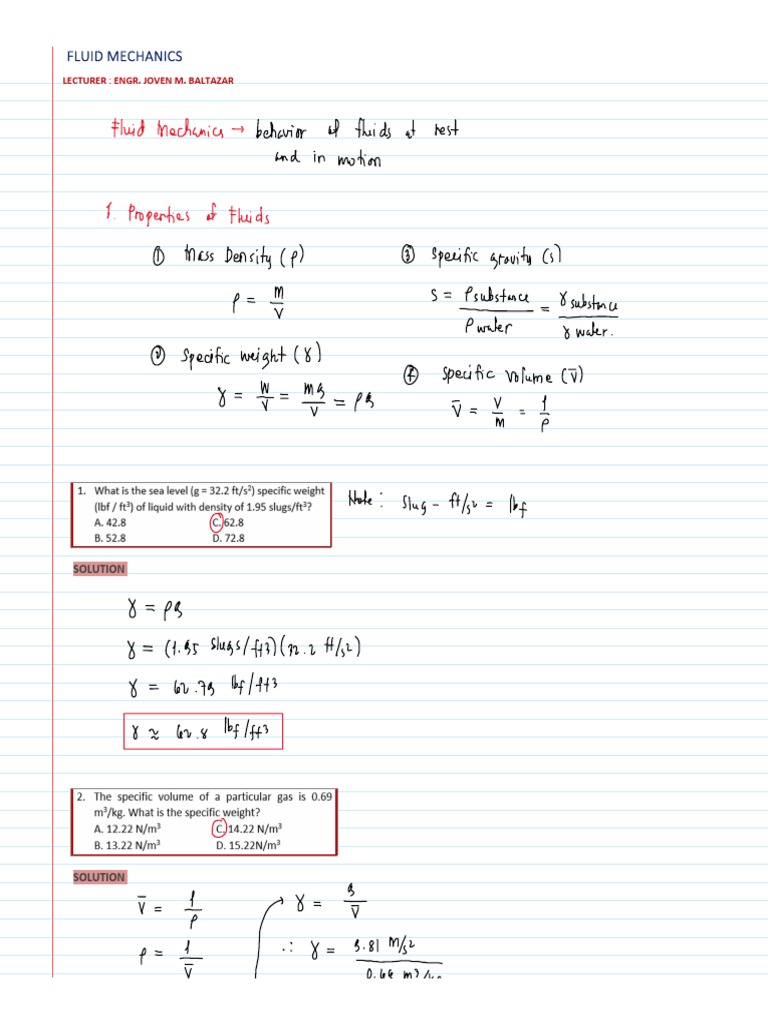 FLUID MECHANICS
LECTURER : ENGR. JOVEN M. BALTAZAR
Fluid Mechanics → behavior of fluids at rest
and in motion
1. Properties of Fluids
① Mass Density (ρ)
ρ = m/V
② Specific weight (γ)
γ = W/V = mg/V = ρg
③ Specific gravity (s)
s = ρsubstance/ρwater = γsubstance/γwater.
④ Specific Volume (V̄)
V̄ = V/m = 1/ρ
1. What is the sea level (g = 32.2 ft/s²) specific weight
(lbf / ft³) of liquid with density of 1.95 slugs/ft³?
A. 42.8 C. 62.8
B. 52.8 D. 72.8
Note: slug - ft/s² = lbf
SOLUTION
γ = ρg
γ = (1.95 slugs/ft3)(32.2 ft/s²)
γ = 62.79 lbf/ft3
γ ≈ 62.8 lbf/ft3
2. The specific volume of a particular gas is 0.69
m³/kg. What is the specific weight?
A. 12.22 N/m³ C. 14.22 N/m³
B. 13.22 N/m³ D. 15.22N/m³
SOLUTION
V̄ = 1/ρ
ρ = 1/V̄
γ = g/V̄
∴ γ = 9.81 m/s²/0.69 m3/kg